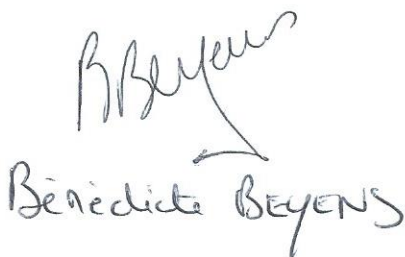 BBeyens
Bénédicte BEYENS